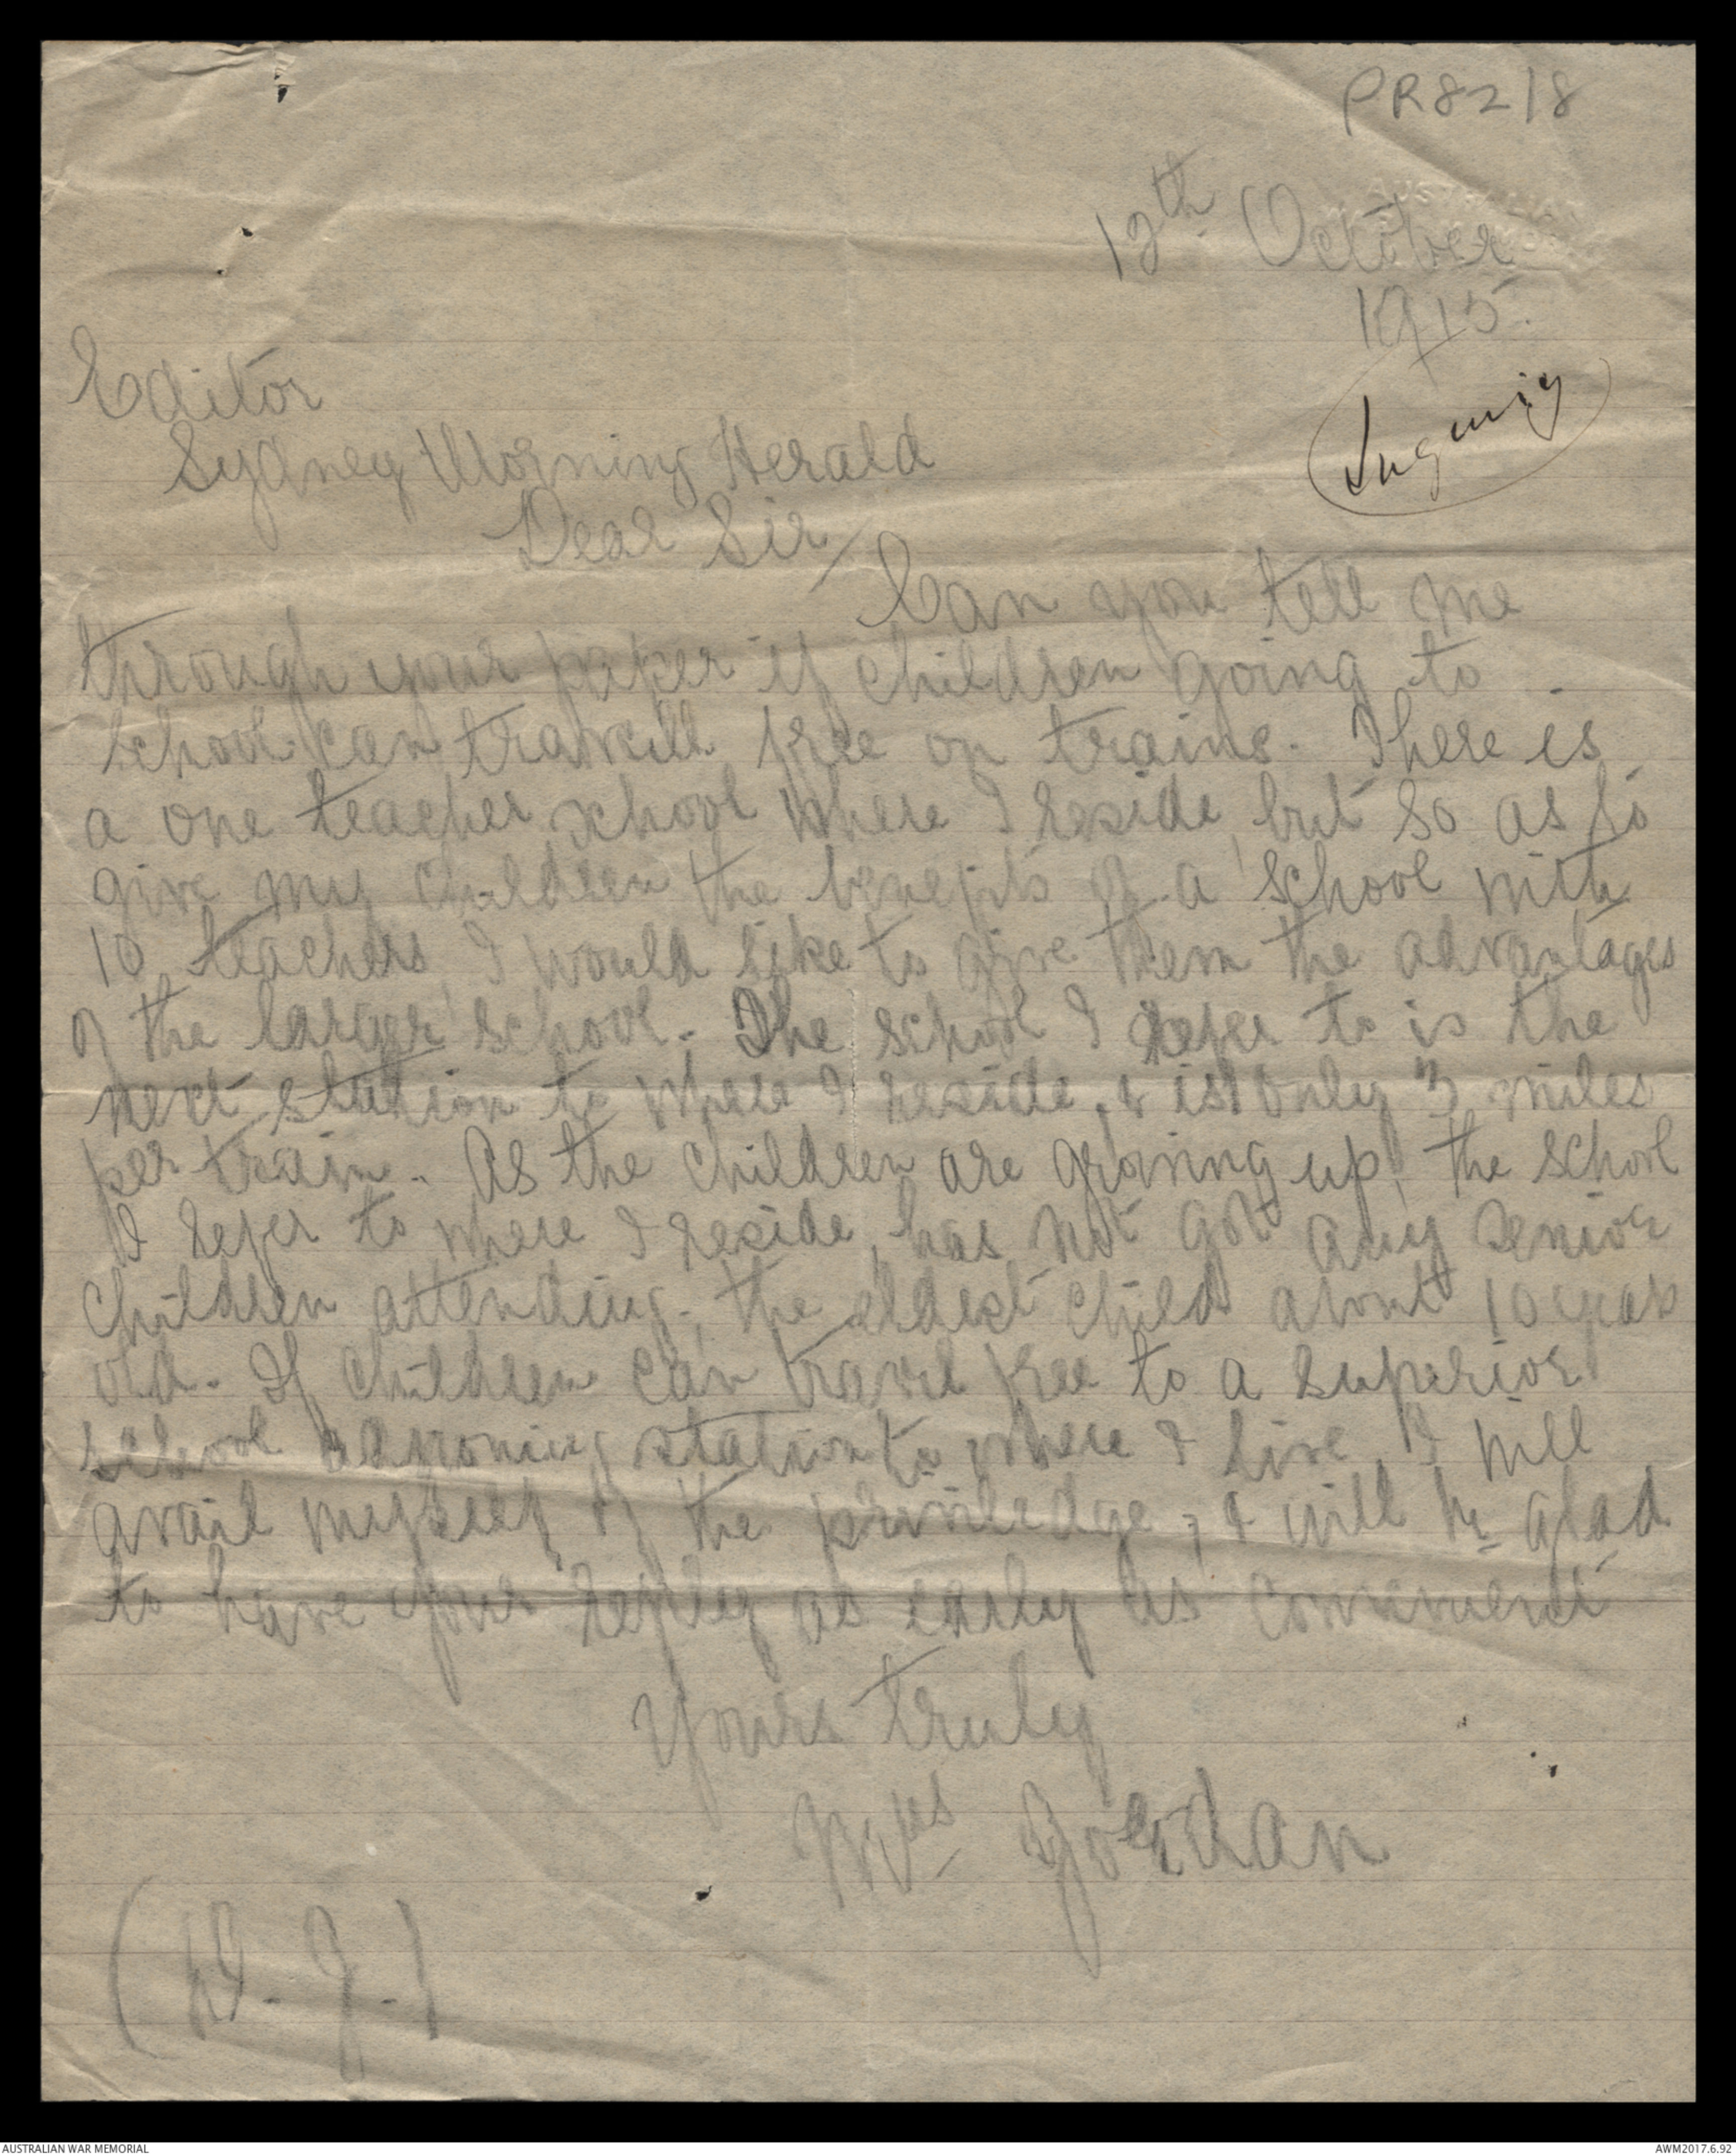 PR82/8
12th October
1915.
Editor
Sydney Morning Herald
Dear Sir/
Can you tell me
through your paper if children going to
school can travell free on trains. There is
a one teacher school where I reside, but so as to
give my children the benefits of a school with
10 teachers, I would like to give them the advantages
of the larger school. The school I refer to is the
next station to where I reside, & is only 3 miles
per train. As the children are growing up, the school
I refer to where I reside, has not got any senior
children attending, the eldest child about 10 years
old. If children can travel free to a superior
school adjoning station to where I live, I will
avail myself of the priviledge, & will be glad
to have your reply as early as convenient
Yours truly
Mrs Jordan
(D. J.)
AUSTRALIAN WAR MEMORIAL
AWM2017.6.92